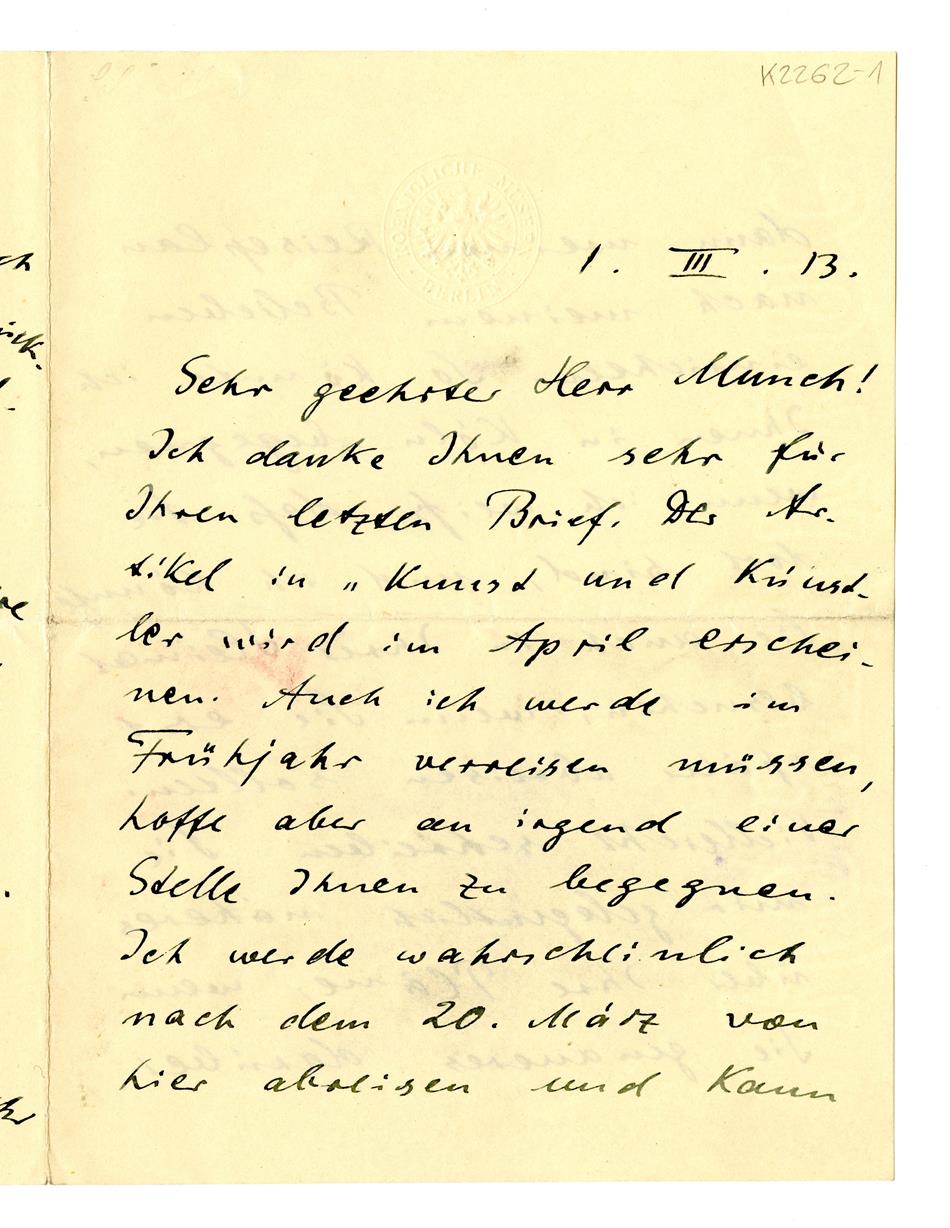 K2262-1
KOENIGLICHE MUSEEN BERLIN
1. III. 13.
Sehr geehrter Herr Munch!
Ich danke Ihnen sehr für
Ihren letzten Brief. Der Ar-
tikel in „Kunst und Künst-
ler wird im April erschei-
nen. Auch ich werde im
Frühjahr verreisen müssen,
hoffe aber an irgend einer
Stelle Ihnen zu begegnen.
Ich werde wahrscheinlich
nach dem 20. März von
hier abreisen und kann